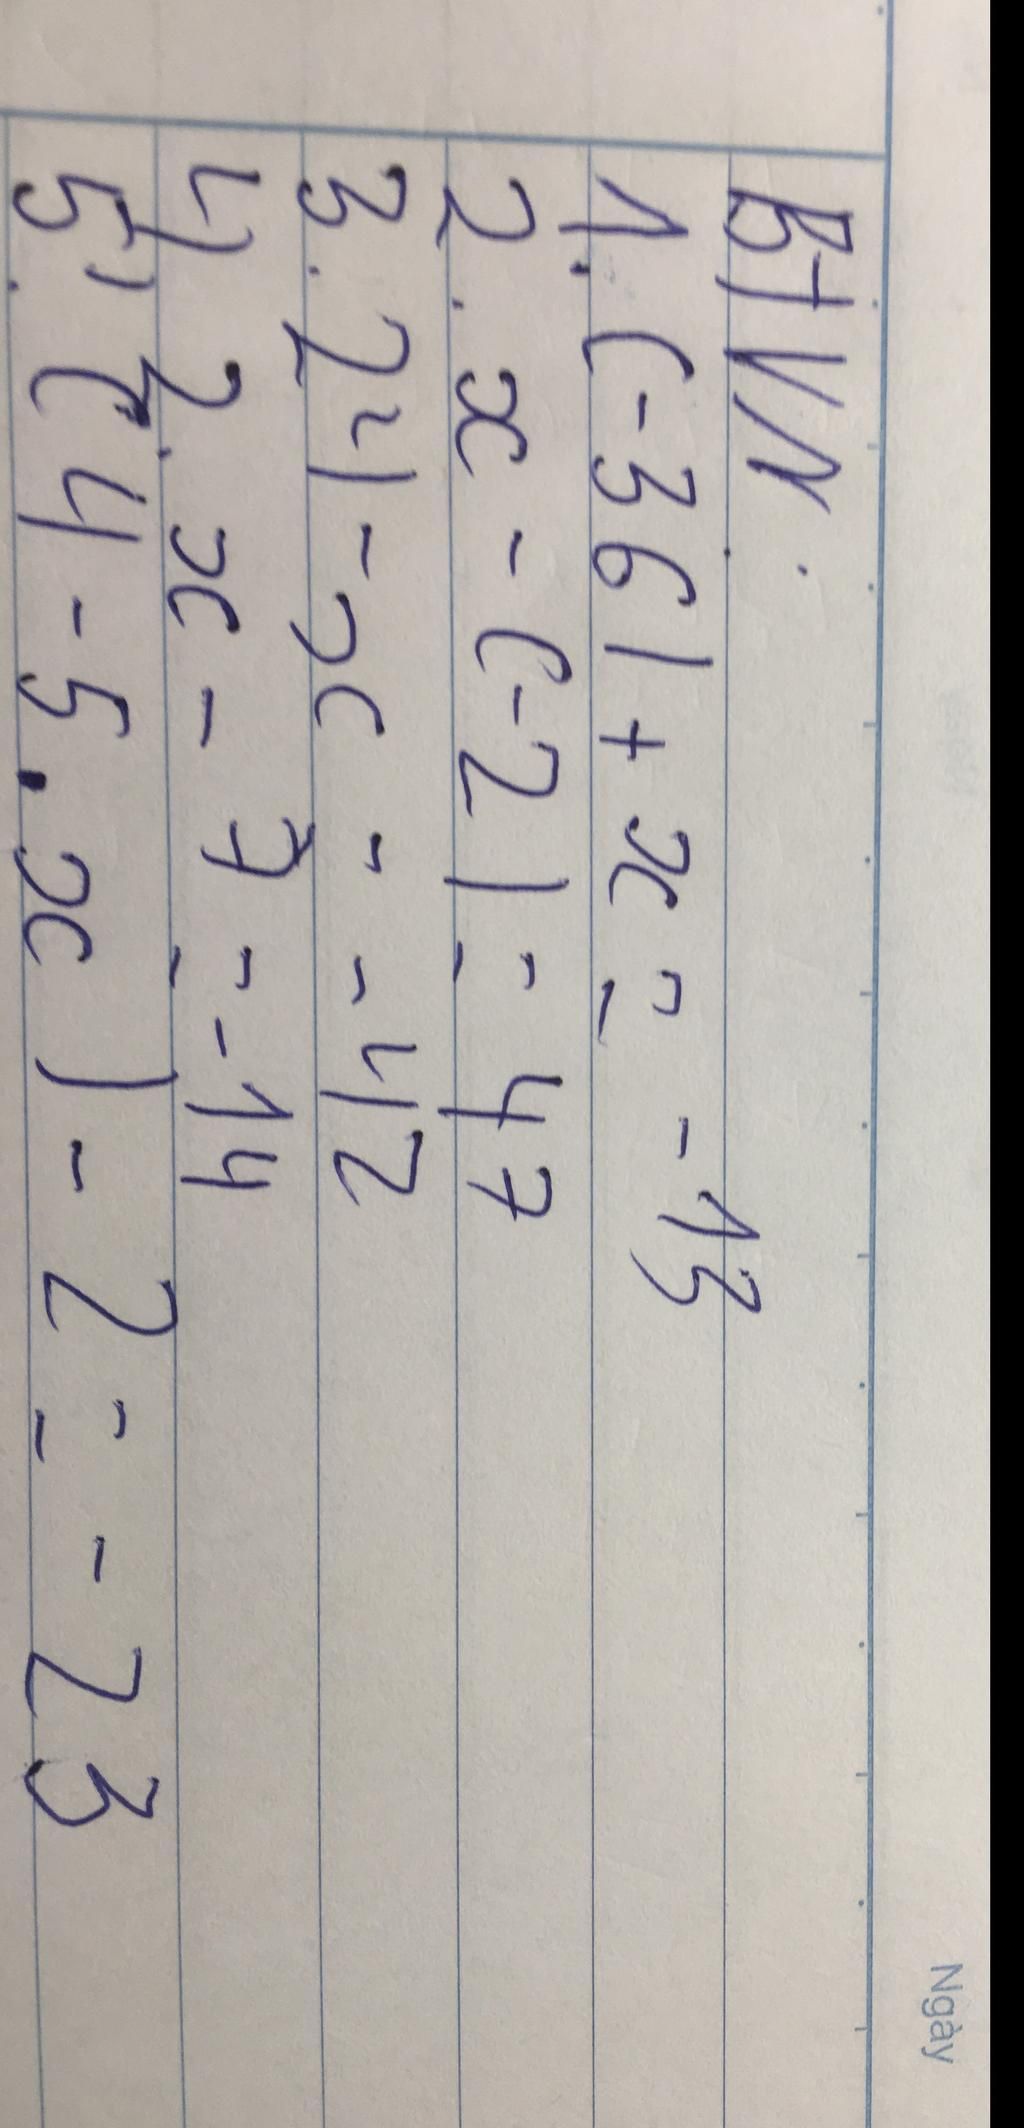 Ngày
BTVN.
1. (-36)+x = -13
2. x - (-2) = 47
3. 24 - x = -42
4) 2.x - 7 = -14
5). (4-5.x) - 2 = -23